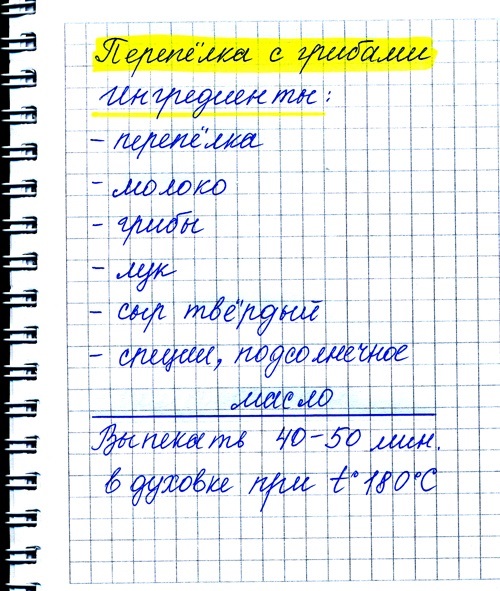 Перепёлка с грибами
Ингредиенты:
- перепёлка
- молоко
- грибы
- лук
- сыр твёрдый
- специи, подсолнечное
масло
Выпекать 40-50 мин.
в духовке при t° 180°C